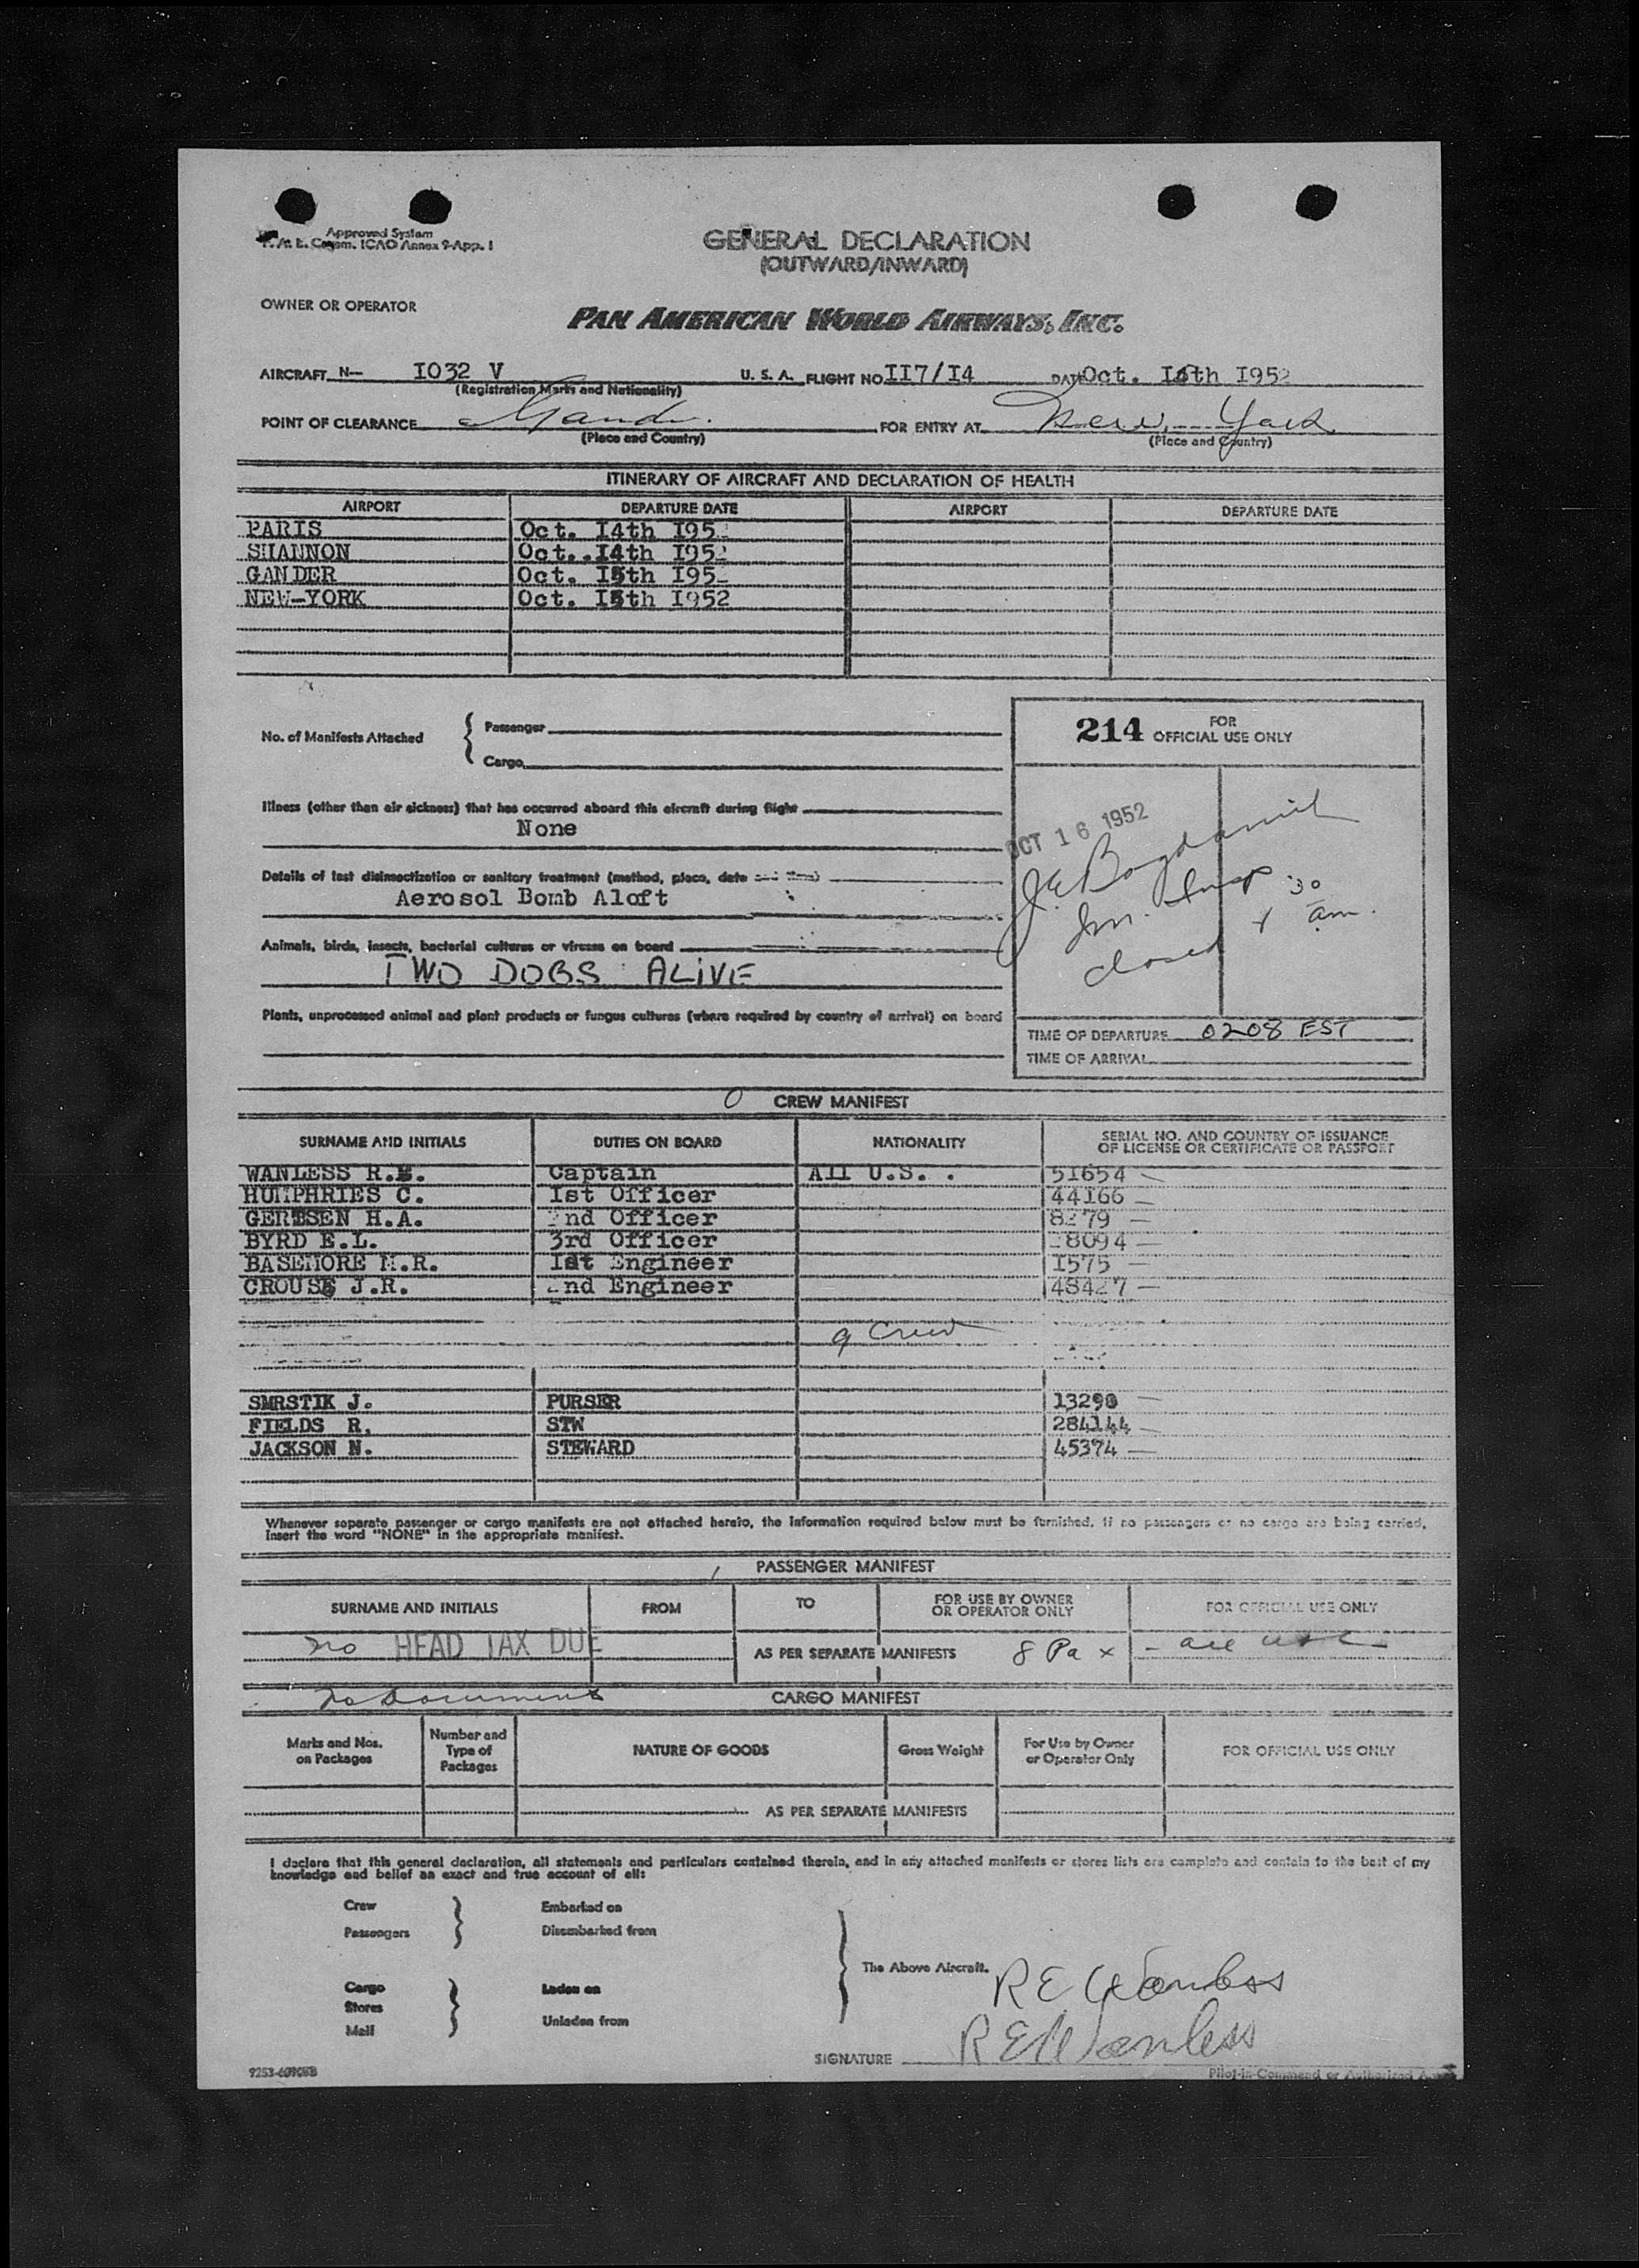 Approved System
ICAO Annex 9-App. I
GENERAL DECLARATION
(OUTWARD/INWARD)
OWNER OR OPERATOR
PAN AMERICAN WORLD AIRWAYS, INC.
AIRCRAFT N— I032 V U. S. A. FLIGHT NO II7/I4 DATE Oct. I4th I952
(Registration Marks and Nationality)
POINT OF CLEARANCE FOR ENTRY AT New York
(Place and Country) (Place and Country)
ITINERARY OF AIRCRAFT AND DECLARATION OF HEALTH
AIRPORT DEPARTURE DATE AIRPORT DEPARTURE DATE
PARIS Oct. I4th I95
SHANNON Oct. I4th I952
GANDER Oct. I5th I95
NEW-YORK Oct. I5th I952
No. of Manifests Attached { Passenger
Cargo
214 FOR OFFICIAL USE ONLY
Illness (other than air sickness) that has occurred aboard this aircraft during flight
None
OCT 16 1952
Details of last disinsectization or sanitary treatment (method, place, date and time)
Aerosol Bomb Aloft
Im. Insp
am.
closed
Animals, birds, insects, bacterial cultures or viruses on board
TWO DOGS ALIVE
Plants, unprocessed animal and plant products or fungus cultures (where required by country of arrival) on board
TIME OF DEPARTURE 0208 EST
TIME OF ARRIVAL
CREW MANIFEST
SURNAME AND INITIALS DUTIES ON BOARD NATIONALITY SERIAL NO. AND COUNTRY OF ISSUANCE OF LICENSE OR CERTIFICATE OR PASSPORT
WANLESS R.E. Captain All U.S. 51654
HUMPHRIES C. Ist Officer 44I66
GERTSEN H.A. 2nd Officer
BYRD E.L. 3rd Officer
BASEMORE M.R. Ist Engineer I575
CROUSE J.R. 2nd Engineer 48427
9 Crew
SMRSTIK J. PURSER 13290
FIELDS R. STW 284144
JACKSON N. STEWARD 45374
Whenever separate passenger or cargo manifests are not attached hereto, the information required below must be furnished. If no passengers or no cargo are being carried,
insert the word "NONE" in the appropriate manifest.
PASSENGER MANIFEST
SURNAME AND INITIALS FROM TO FOR USE BY OWNER OR OPERATOR ONLY FOR OFFICIAL USE ONLY
no HEAD TAX DUE AS PER SEPARATE MANIFESTS 8 Pax - all usc
no Documents CARGO MANIFEST
Marks and Nos. on Packages Number and Type of Packages NATURE OF GOODS Gross Weight For Use by Owner or Operator Only FOR OFFICIAL USE ONLY
AS PER SEPARATE MANIFESTS
I declare that this general declaration, all statements and particulars contained therein, and in any attached manifests or stores lists are complete and contain to the best of my
knowledge and belief an exact and true account of all:
Crew Embarked on
Passengers Disembarked from
The Above Aircraft.
R E Wanless
Cargo Laden on
Stores
Mail Unladen from
SIGNATURE R E Wanless
Pilot-in-Command or Authorized